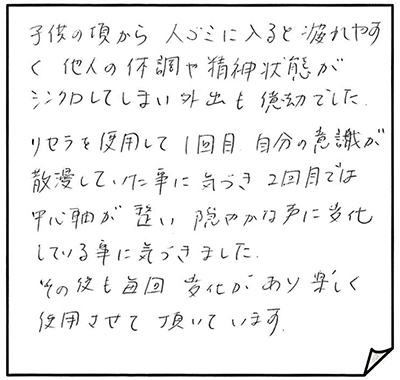 子供の頃から 人ゴミに入ると疲れやす
く 他人の体調や精神状態が
シンクロしてしまい外出も億劫でした.
リセラを使用して 1回目 自分の意識が
散漫していた事に気づき 2回目では
中心軸が 整い 穏やかな声に変化
している事に気づきました.
その後も毎回 変化があり 楽しく
使用させて 頂いています.